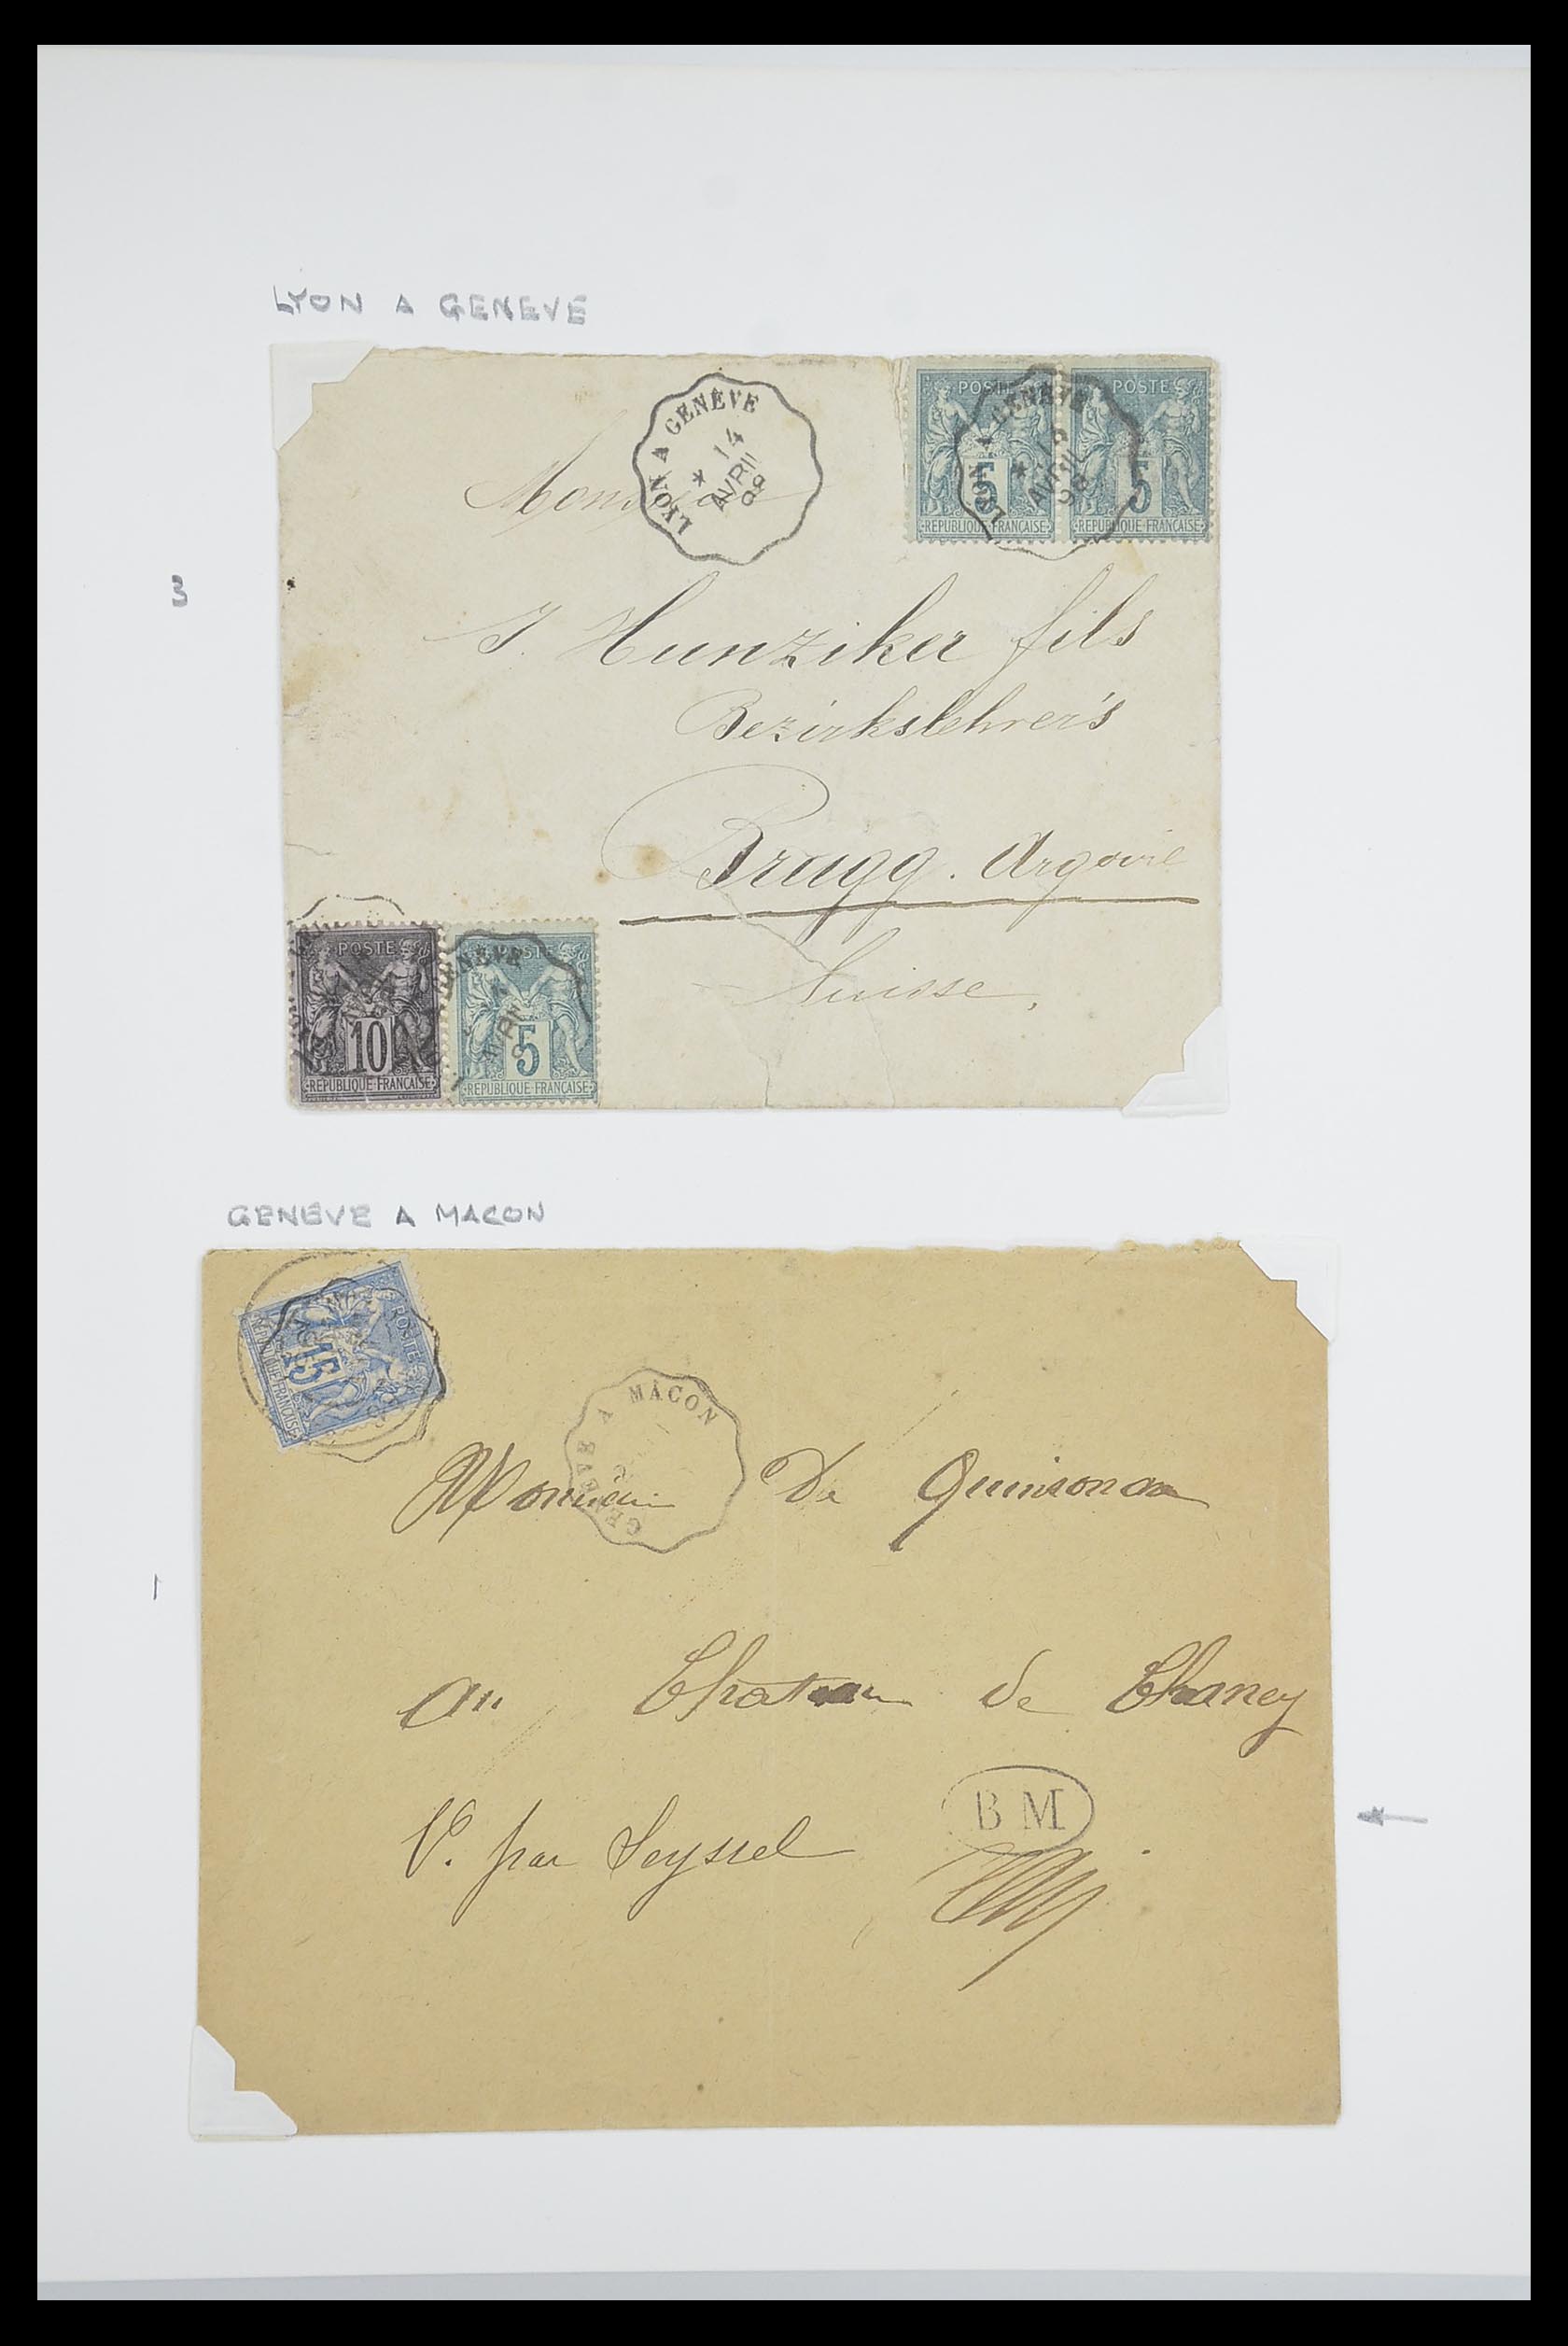 LYON A GENEVE
LYON A GENÈVE
* 14
AVRIL
98
POSTE
5
REPUBLIQUE FRANÇAISE
POSTE
5
REPUBLIQUE FRANÇAISE
LYON A GENÈVE
*
AVRIL
98
Monsieur
3
J. Hunziker fils
Bezirkslehrer's
Brugg. Argovie
Suisse.
POSTE
10
REPUBLIQUE FRANÇAISE
POSTE
5
REPUBLIQUE FRANÇAISE
GENÈVE
GENEVE A MACON
POSTE
15
REPUBLIQUE FRANÇAISE
GENÈVE A MÂCON
Monsieur De Quinsonas
1
au Chateau de Chaney
V. par Seyssel
B M